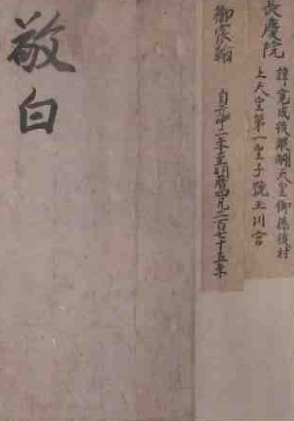 長慶院
諱寛成後醍醐天皇御孫後村
上天皇第一皇子號玉川宮
御宸翰
自元中二年至明暦四凡二百七十五年
敬白